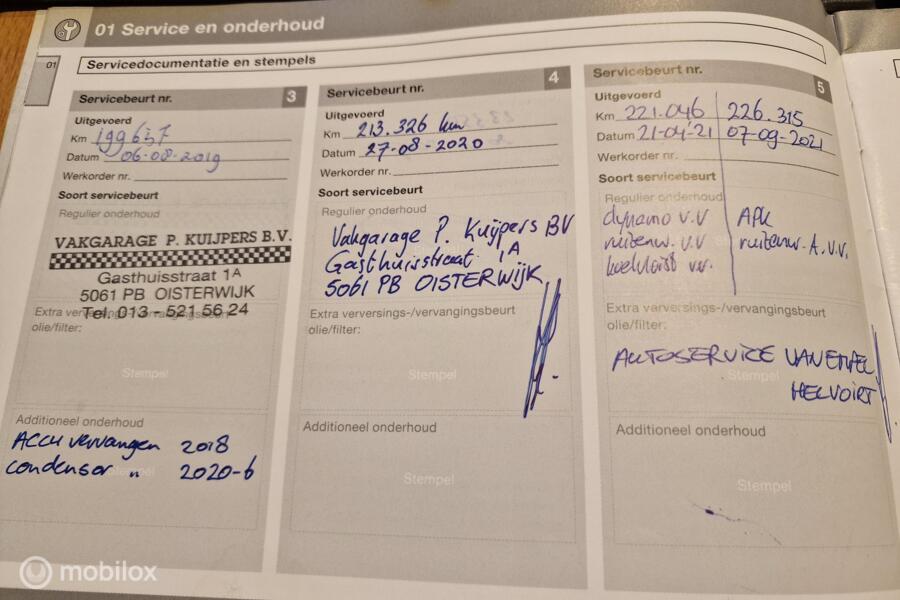 01 Service en onderhoud
01
Servicedocumentatie en stempels
Servicebeurt nr. 3
Uitgevoerd
Km 199657
Datum 06-08-2019
Werkorder nr.
Soort servicebeurt
Regulier onderhoud
VAKGARAGE P. KUIJPERS B.V.
Gasthuisstraat 1A
5061 PB OISTERWIJK
Tel. 013 - 521 56 24
Extra verversings-/vervangingsbeurt
olie/filter:
Stempel
Additioneel onderhoud
ACCU vervangen 2018
condensor " 2020-6
Servicebeurt nr. 4
Uitgevoerd
Km 213.326 km
Datum 27-08-2020
Werkorder nr.
Soort servicebeurt
Regulier onderhoud
Vakgarage P. Kuijpers BV
Gasthuisstraat 1A
5061 PB OISTERWIJK
Extra verversings-/vervangingsbeurt
olie/filter:
Stempel
Additioneel onderhoud
Stempel
Servicebeurt nr. 5
Uitgevoerd
Km 221.046 226.315
Datum 21-04-'21 07-09-2021
Werkorder nr.
Soort servicebeurt
Regulier onderhoud
dynamo v.v APK
ruitenw. v.v ruitenw. A.v.v.
koelvloist v.v.
Extra verversings-/vervangingsbeurt
olie/filter:
AUTOSERVICE VAN EMPEL
HELVOIRT
Stempel
Additioneel onderhoud
Stempel
mobilox